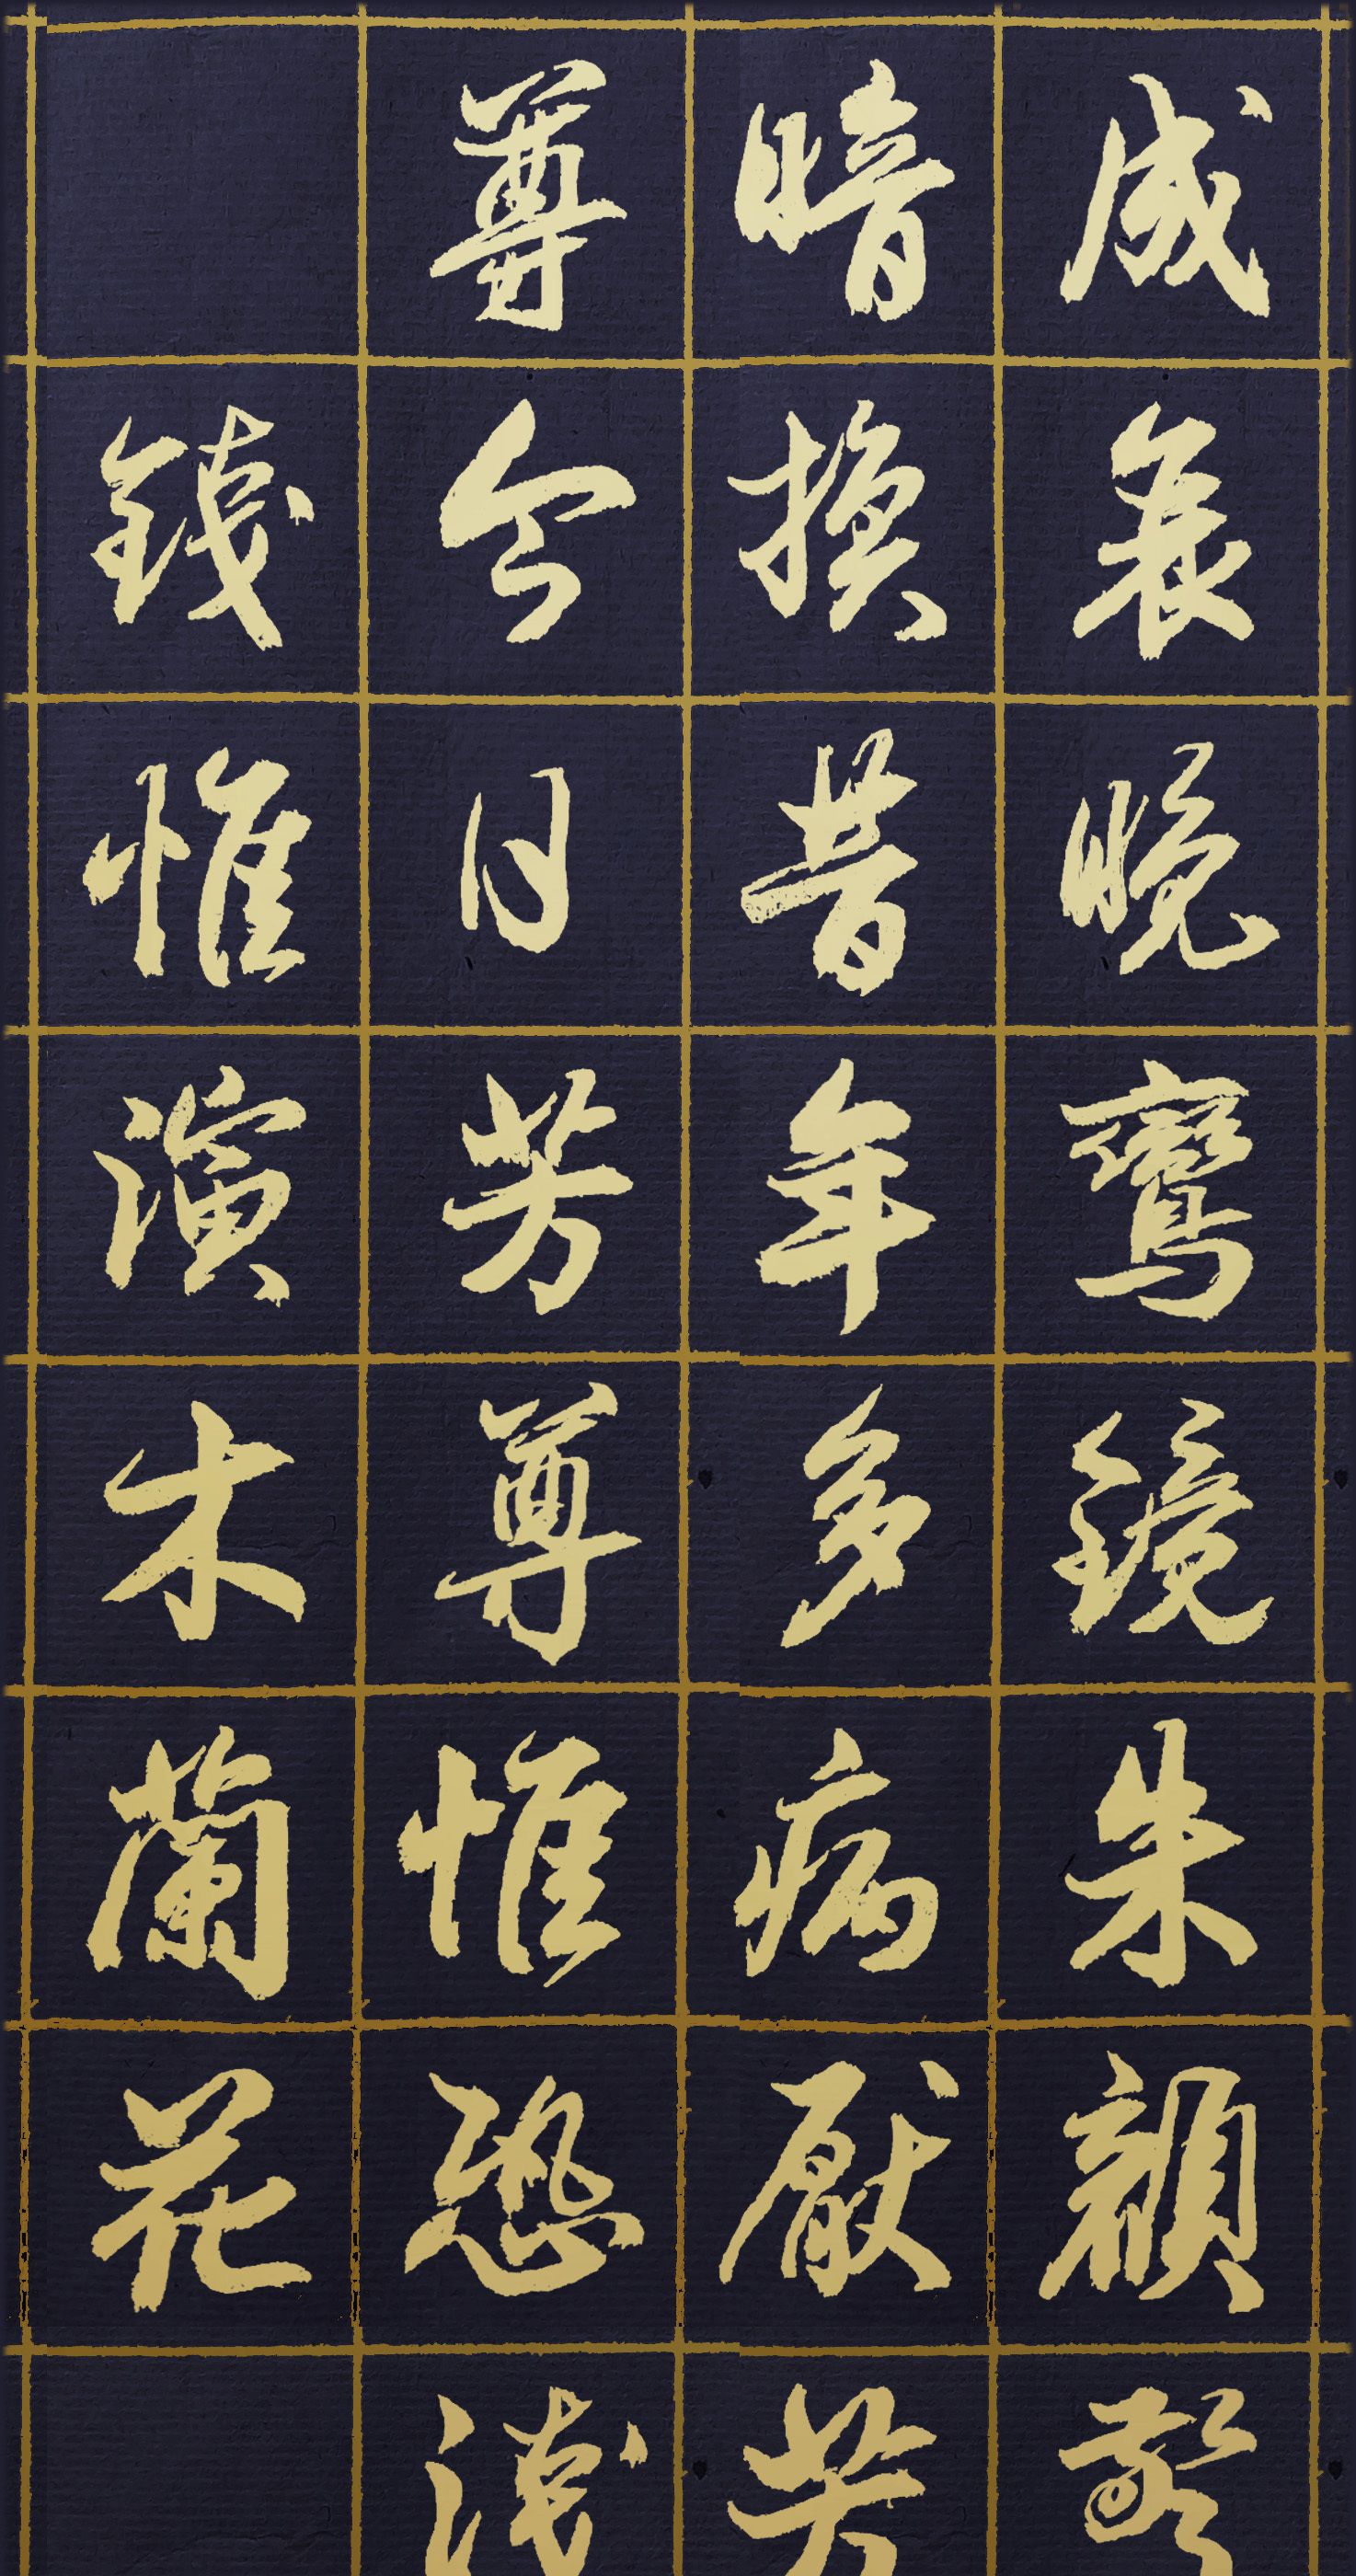 成衰晚鸞鏡朱顏驚
暗換昔年多病厭芳
尊今日芳尊惟恐淺
錢惟演木蘭花